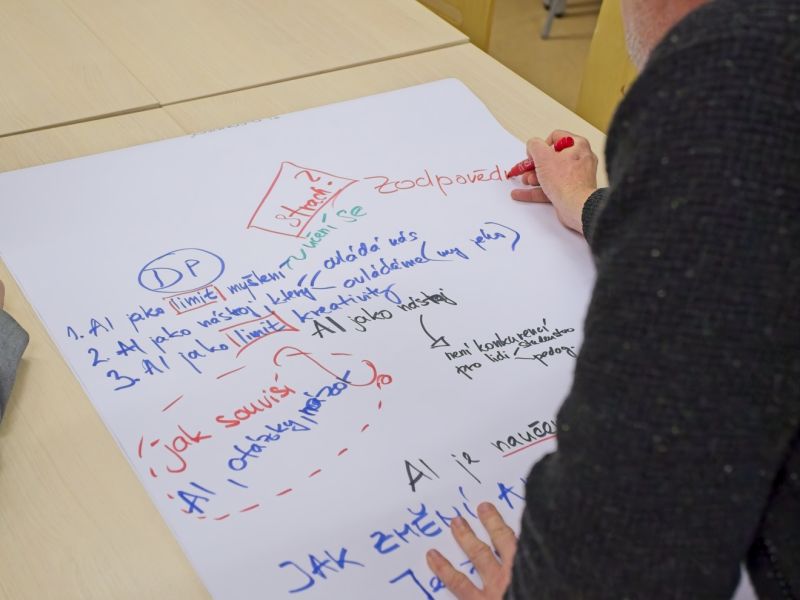 Strach?
zodpovědn
učení se
DP
1. AI jako limit myšlení
2. AI jako nástroj který ovládá nás
ovládáme (my jeho)
3. AI jako limit kreativity
AI jako nástroj
není konkurencí
pro lidi studentstvo
pedag.
jak souvisí
AI, otázky, názor
AI je naučen
JAK ZMĚNÍ A